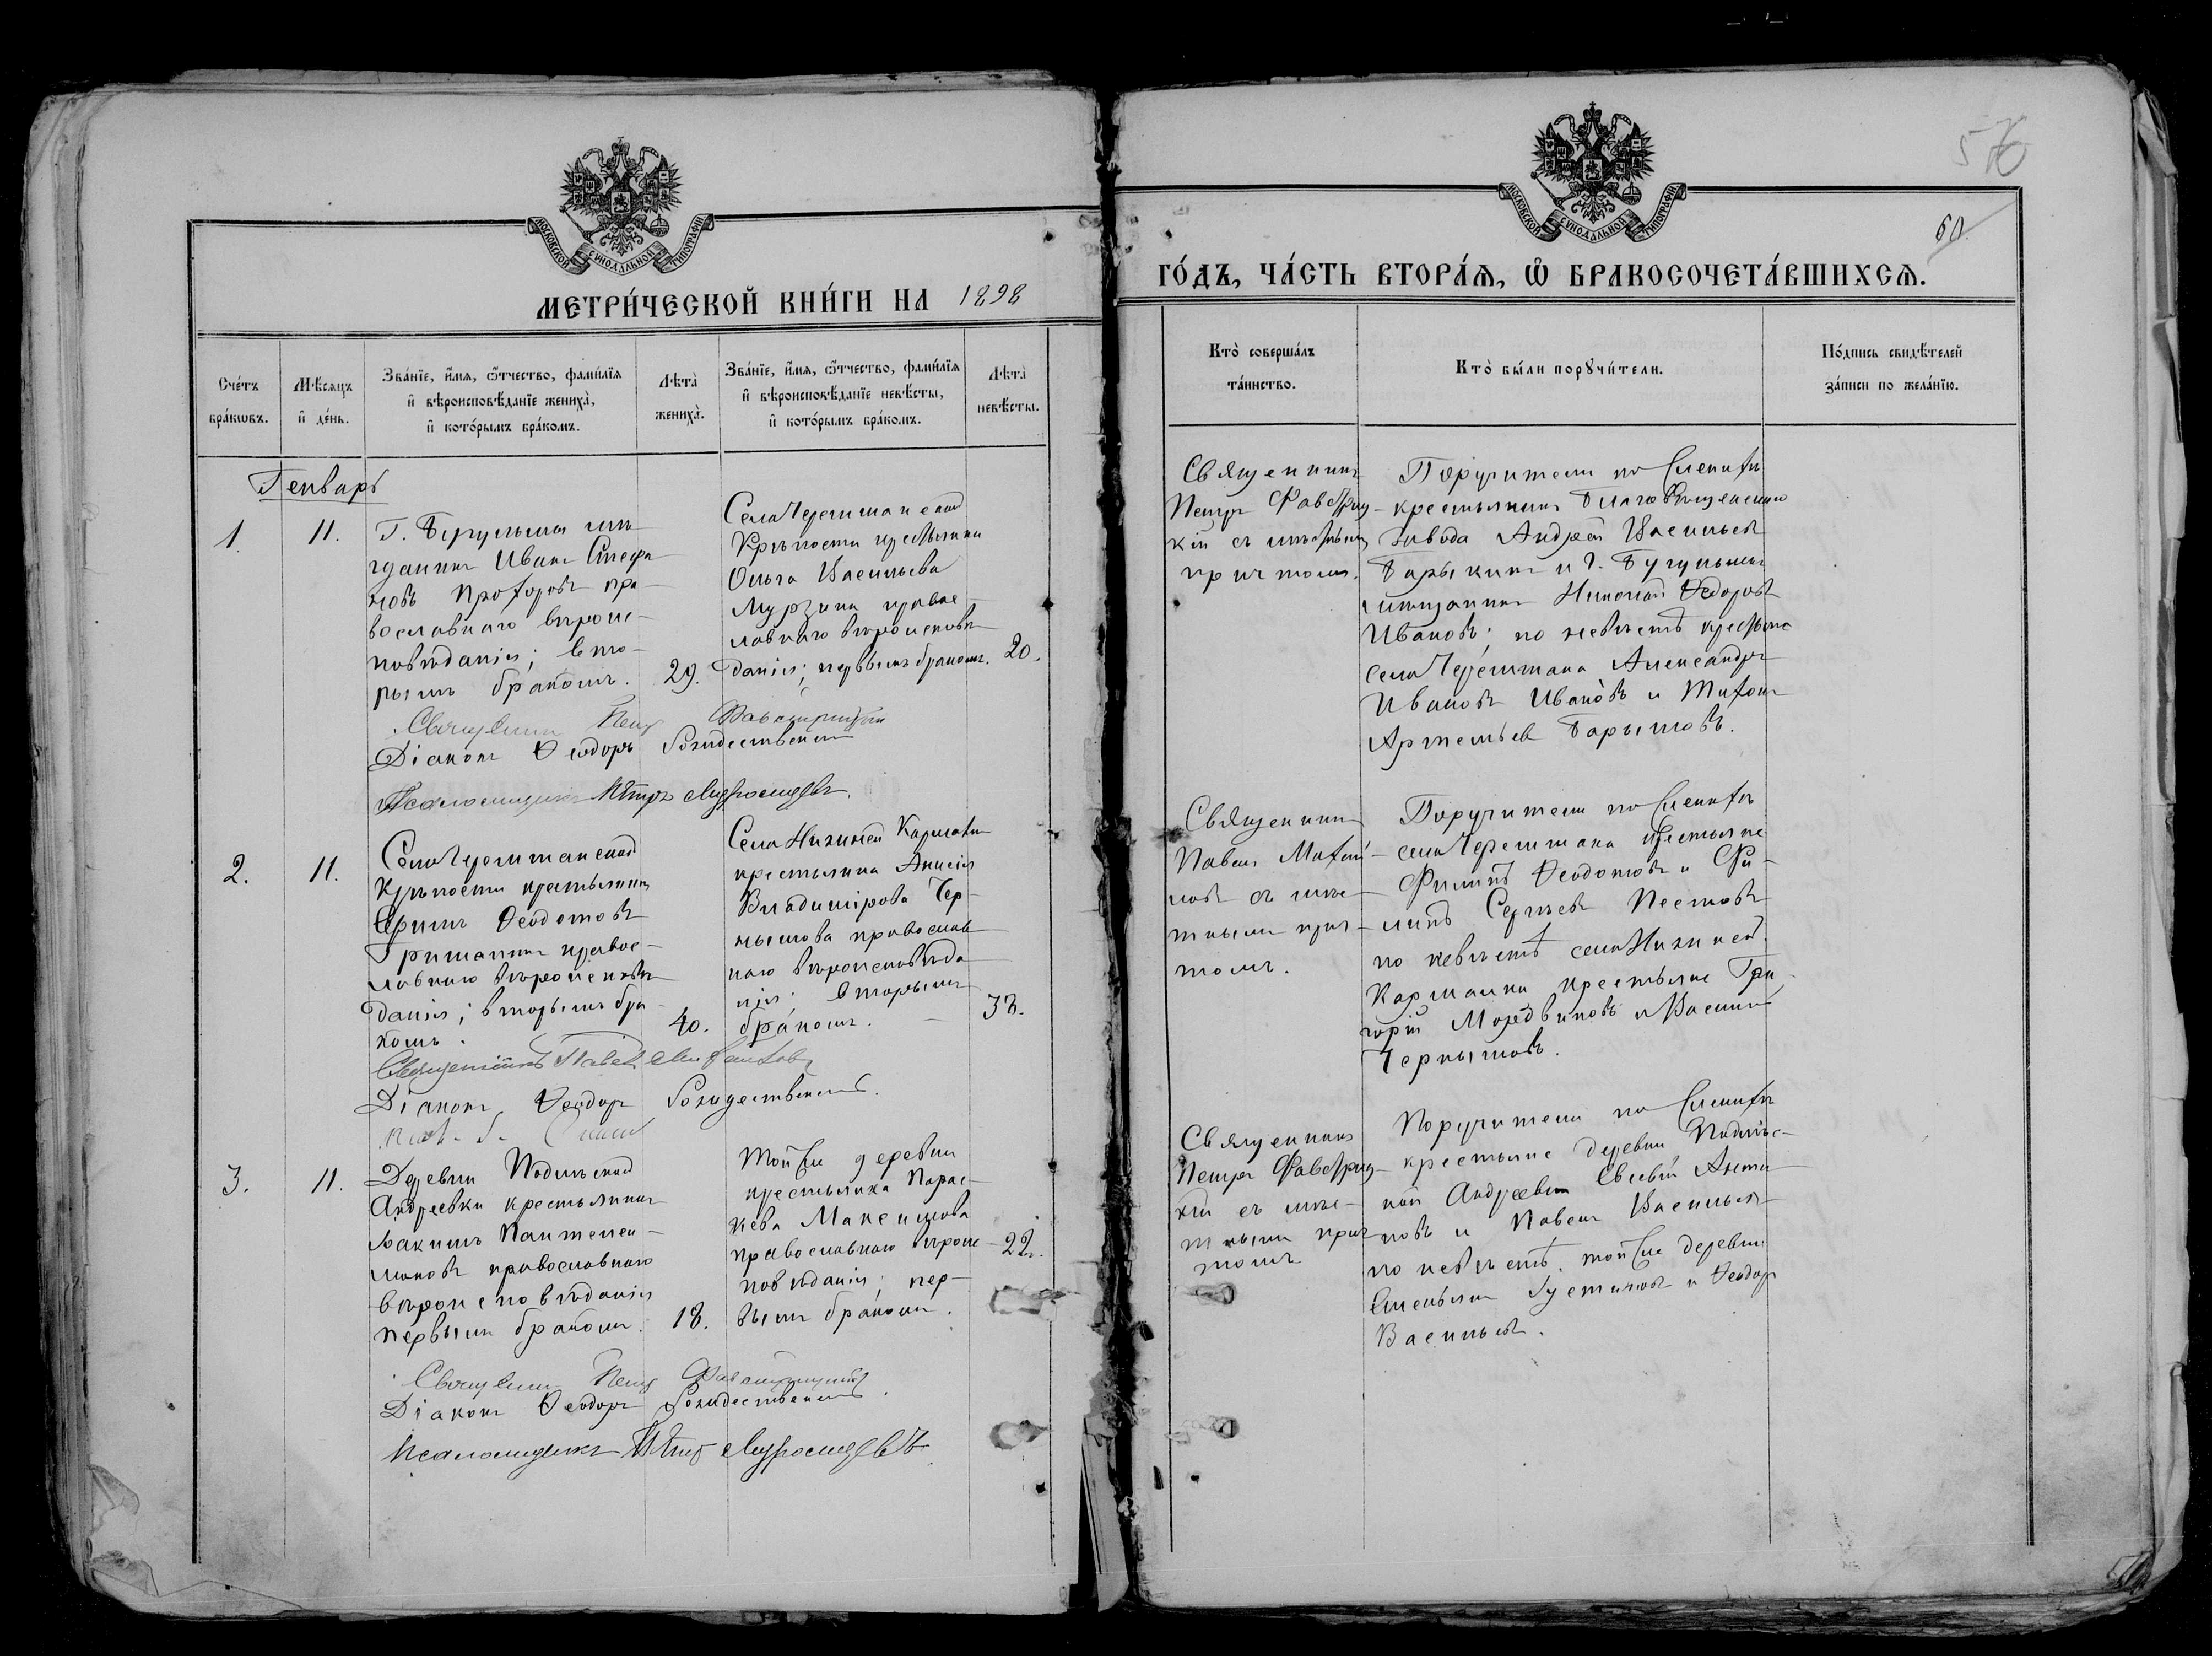 МОСКОВСКОЙ СѴНОДАЛЬНОЙ ТИПОГРАФІИ
МЕТРИ́ЧЕСКОЙ КНИ́ГИ НА 1898
Сче́тъ бра́кωвъ.
Мѣ́сяцъ и҆ де́нь.
Зва́нїе, и҆́мѧ, ѻ҆́тчество, фами́лїѧ
и҆ вѣроисповѣ́данїе жениха̀,
и҆ кото́рымъ бра́комъ.
Лѣта̀ жениха̀.
Зва́нїе, и҆́мѧ, ѻ҆́тчество, фами́лїѧ
и҆ вѣроисповѣ́данїе невѣ́сты,
и҆ кото́рымъ бра́комъ.
Лѣта̀ невѣ́сты.
Генварь
1.
11.
Г. Бугульмы мѣ-
щанинъ Иванъ Стефа
новъ Прохоровъ пра-
вославнаго вѣроис-
повѣданія; вто-
рымъ бракомъ.
29.
Села Черемшанской
Крѣпости крестьянка
Ольга Васильева
Мурзина правос-
лавнаго вѣроисповѣ
данія; первымъ бракомъ.
20.
Священникъ Петръ Фавстрицкій
Діаконъ Ѳеодоръ Рождественскій
Псаломщикъ Петръ
2.
11.
Села Черемшанской
Крѣпости крестьянинъ
Ефимъ Ѳеодотовъ
Гришанинъ правос-
лавнаго вѣроисповѣ
данія; вторымъ бра
комъ.
40.
Села Нижней Кармалки
крестьянка Анисія
Владимірова Чер-
нышова православ
наго вѣроисповѣда
нія; вторымъ
бракомъ.
38.
Священникъ Павелъ
Діаконъ Ѳеодоръ Рождественскій.
3.
11.
Деревни Подлѣсной
Андреевки крестьянинъ
Іакимъ Пантелей-
моновъ православнаго
вѣроисповѣданія
первымъ бракомъ.
18.
Той же деревни
крестьянка Парас-
кева Максимова
православнаго вѣроис-
повѣданія; пер-
вымъ бракомъ.
22.
Священникъ Петръ Фавстрицкій
Діаконъ Ѳеодоръ Рождественскій.
Псаломщикъ Петръ
МОСКОВСКОЙ СѴНОДАЛЬНОЙ ТИПОГРАФІИ
60.
ГО́ДЪ, ЧА́СТЬ ВТОРА́Ѧ, Ѽ БРАКОСОЧЕТА́ВШИХСѦ.
Кто̀ соверша́лъ
та́инство.
Кто̀ бы́ли порꙋчи́тели.
По́дпись свидѣ́телей
за́писи по жела́нїю.
Священникъ
Петръ Фавстриц-
кій съ мѣстнымъ
причтомъ.
Поручители по женихѣ
крестьянинъ Благовѣщенскаго
Завода Андрей Васильевъ
Барыкинъ и г. Бугульмы
мѣщанинъ Николай Ѳедоровъ
Ивановъ; по невѣстѣ крестьяне
села Черемшана Александръ
Ивановъ Ивановъ и Тихонъ
Артемьевъ Барышовъ.
Священникъ
Павелъ
новъ съ мѣс-
тнымъ прич-
томъ.
Поручители по женихѣ
села Черемшана крестьяне
Филиппъ Ѳеодотовъ и Фи-
липпъ Сергѣевъ Пестовъ
по невѣстѣ села Нижней
Кармалки крестьяне Гри-
горій Мордвиновъ и Василій
Чернышовъ.
Священникъ
Петръ Фавстриц-
кій съ мѣс-
тнымъ прич
томъ
Поручители по женихѣ
крестьяне деревни Подлѣс-
ной Андреевки Евсевій Анти-
повъ и Павелъ Васильевъ
по невѣстѣ той же деревни
Емельянъ Густиновъ и Ѳеодоръ
Васильевъ.